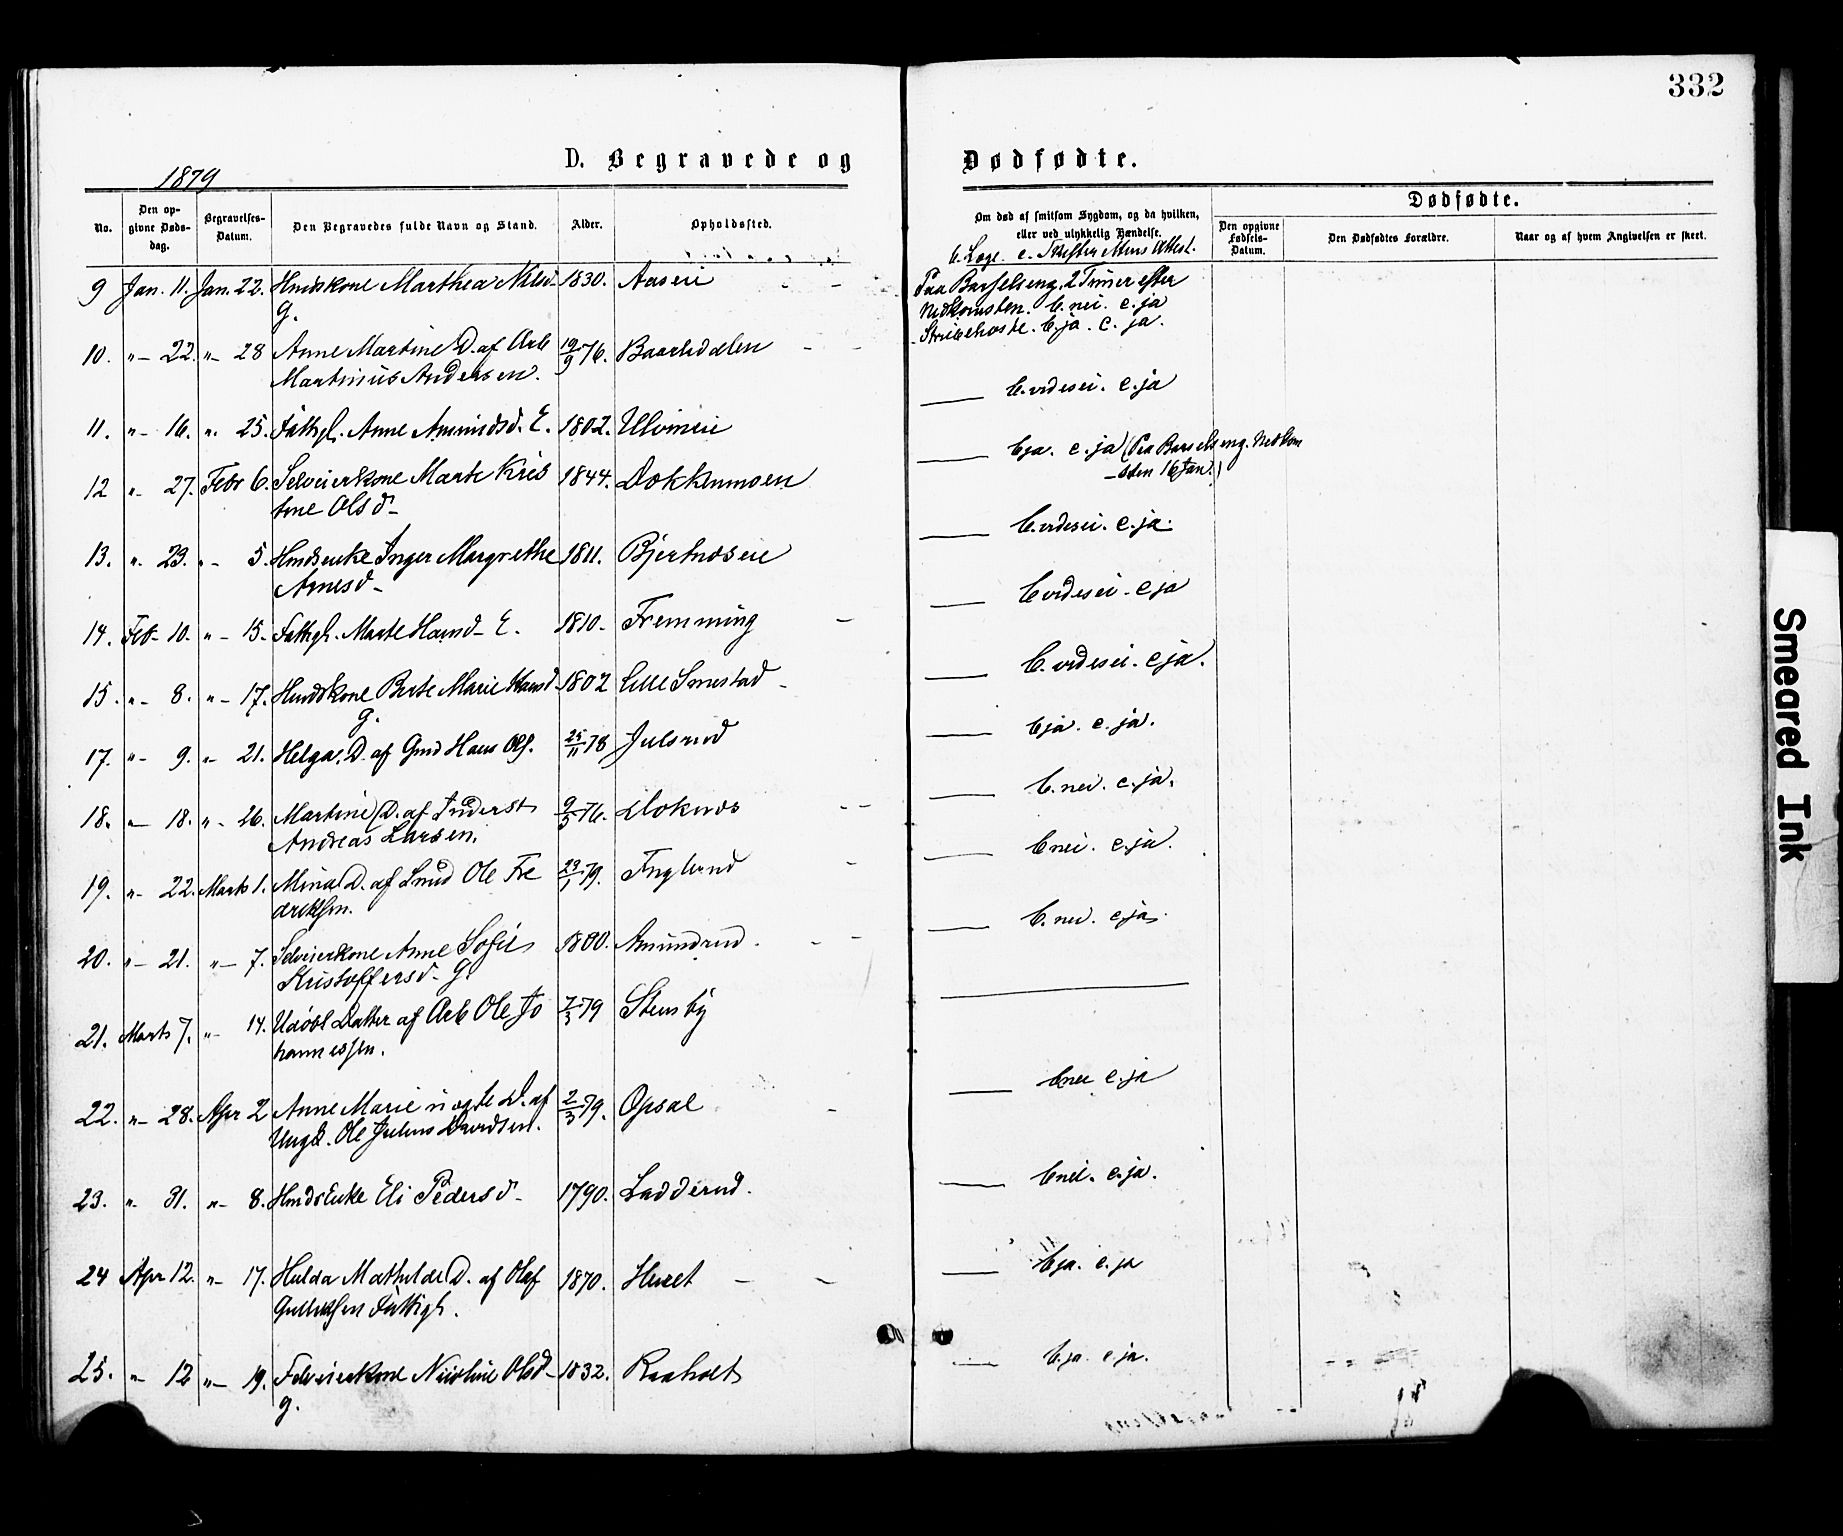 332
1879
D. Begravede og Dødfødte.
No. Den opgivne Dødsdag. Begravelses-Datum. Den Begravedes fulde Navn og Stand. Alder. Opholdssted. Om død af smitsom Sygdom, og da hvilken, eller ved ulykkelig Hændelse. Dødfødte.
Den opgivne Fødsels-Datum. Den Dødfødtes Forældre. Naar og af hvem Angivelsen er skeet.
b. Læge. c. Skifter Attest.
9 Jan. 11. Jan. 22. Hmdskone Marthea Nilsd- 1830. Aaseie Paa Barselseng, 2 Timer efter
G. Nedkomsten. b. nei. c. ja
Strubehoste. b. ja. c. ja.
10. "- 22. "- 28 Anne Martine D. af Arb 19/9 76. Baarlidalen
Martinius Andersen.
b. vides ei. c. ja
11. "- 16. "- 25. Fattgl. Anne Amundsd. E. 1802. Ulvineie
b ja. c. ja (Paa Barselseng. Nedkom
-sten 16 Jan.)
12 "- 27. Febr 6. Selveierkone Marte Kris 1844. Dokkenmoen
tine Olsd-
b. vides ei. c. ja.
13. "- 23. "- 5. Hmdsenke Inger Margrethe 1811. Bjertnæseie
Arnesd-
b vides ei. c ja
14. Feb. 10. "- 15. Fattgl. Marte Hansd- E. 1810. Fremming
b. vides ei. c ja.
15. "- 8. "- 17. Hmdskone Berte Marie Hansd 1802 Lille Smestad
G.
b ja. c. ja.
17. "- 9. "- 21. Helga, D. af Gmd Hans Ols. 25/11 78 Julsrud
b. nei. c. ja.
18. "- 18. "- 26. Martine D. af Inderst 9/3 76. Doknæs
Andreas Larsen.
b nei. c. ja.
19. "- 22. Marts 1. Mina D. af Smed Ole Fre 23/1 79. Fuglerud
driksen.
b. nei. c. ja.
20. "- 21. "- 7. Selveierkone Anne Sofie 1800. Amundrud.
Kristoffersd- G.
21. Marts 7. "- 14. Udøbt Datter af Arb Ole Jo 7/3 79 Stensby
hannessen.
b nei c. ja
22. "- 28. Apr 2 Anne Marie uægte D. af 2/3 79. Opsal
Ungk. Ole Julius Davidsen.
b nei. c. ja.
23. "- 31. "- 8. Hmdsenke Eli Pedersd- 1790. Ladderud.
b ja. c. ja
24 Apr 12. "- 17. Hulda Mathilde D. af Olaf 1870. Huset
Gulliksen Fattigl.
b. ja. c. ja.
25. "- 12 "- 19. Selveierkone Nicoline Olsd- 1832. Raaholt
G.
Smeared Ink